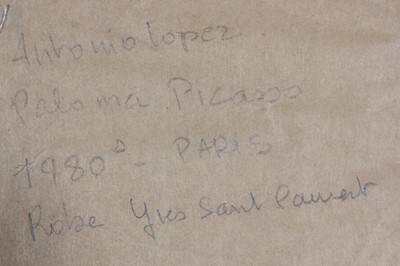 Antonio Lopez.
Paloma. Picasso
1980s - PARIS
Robe Yves Sant Laurent